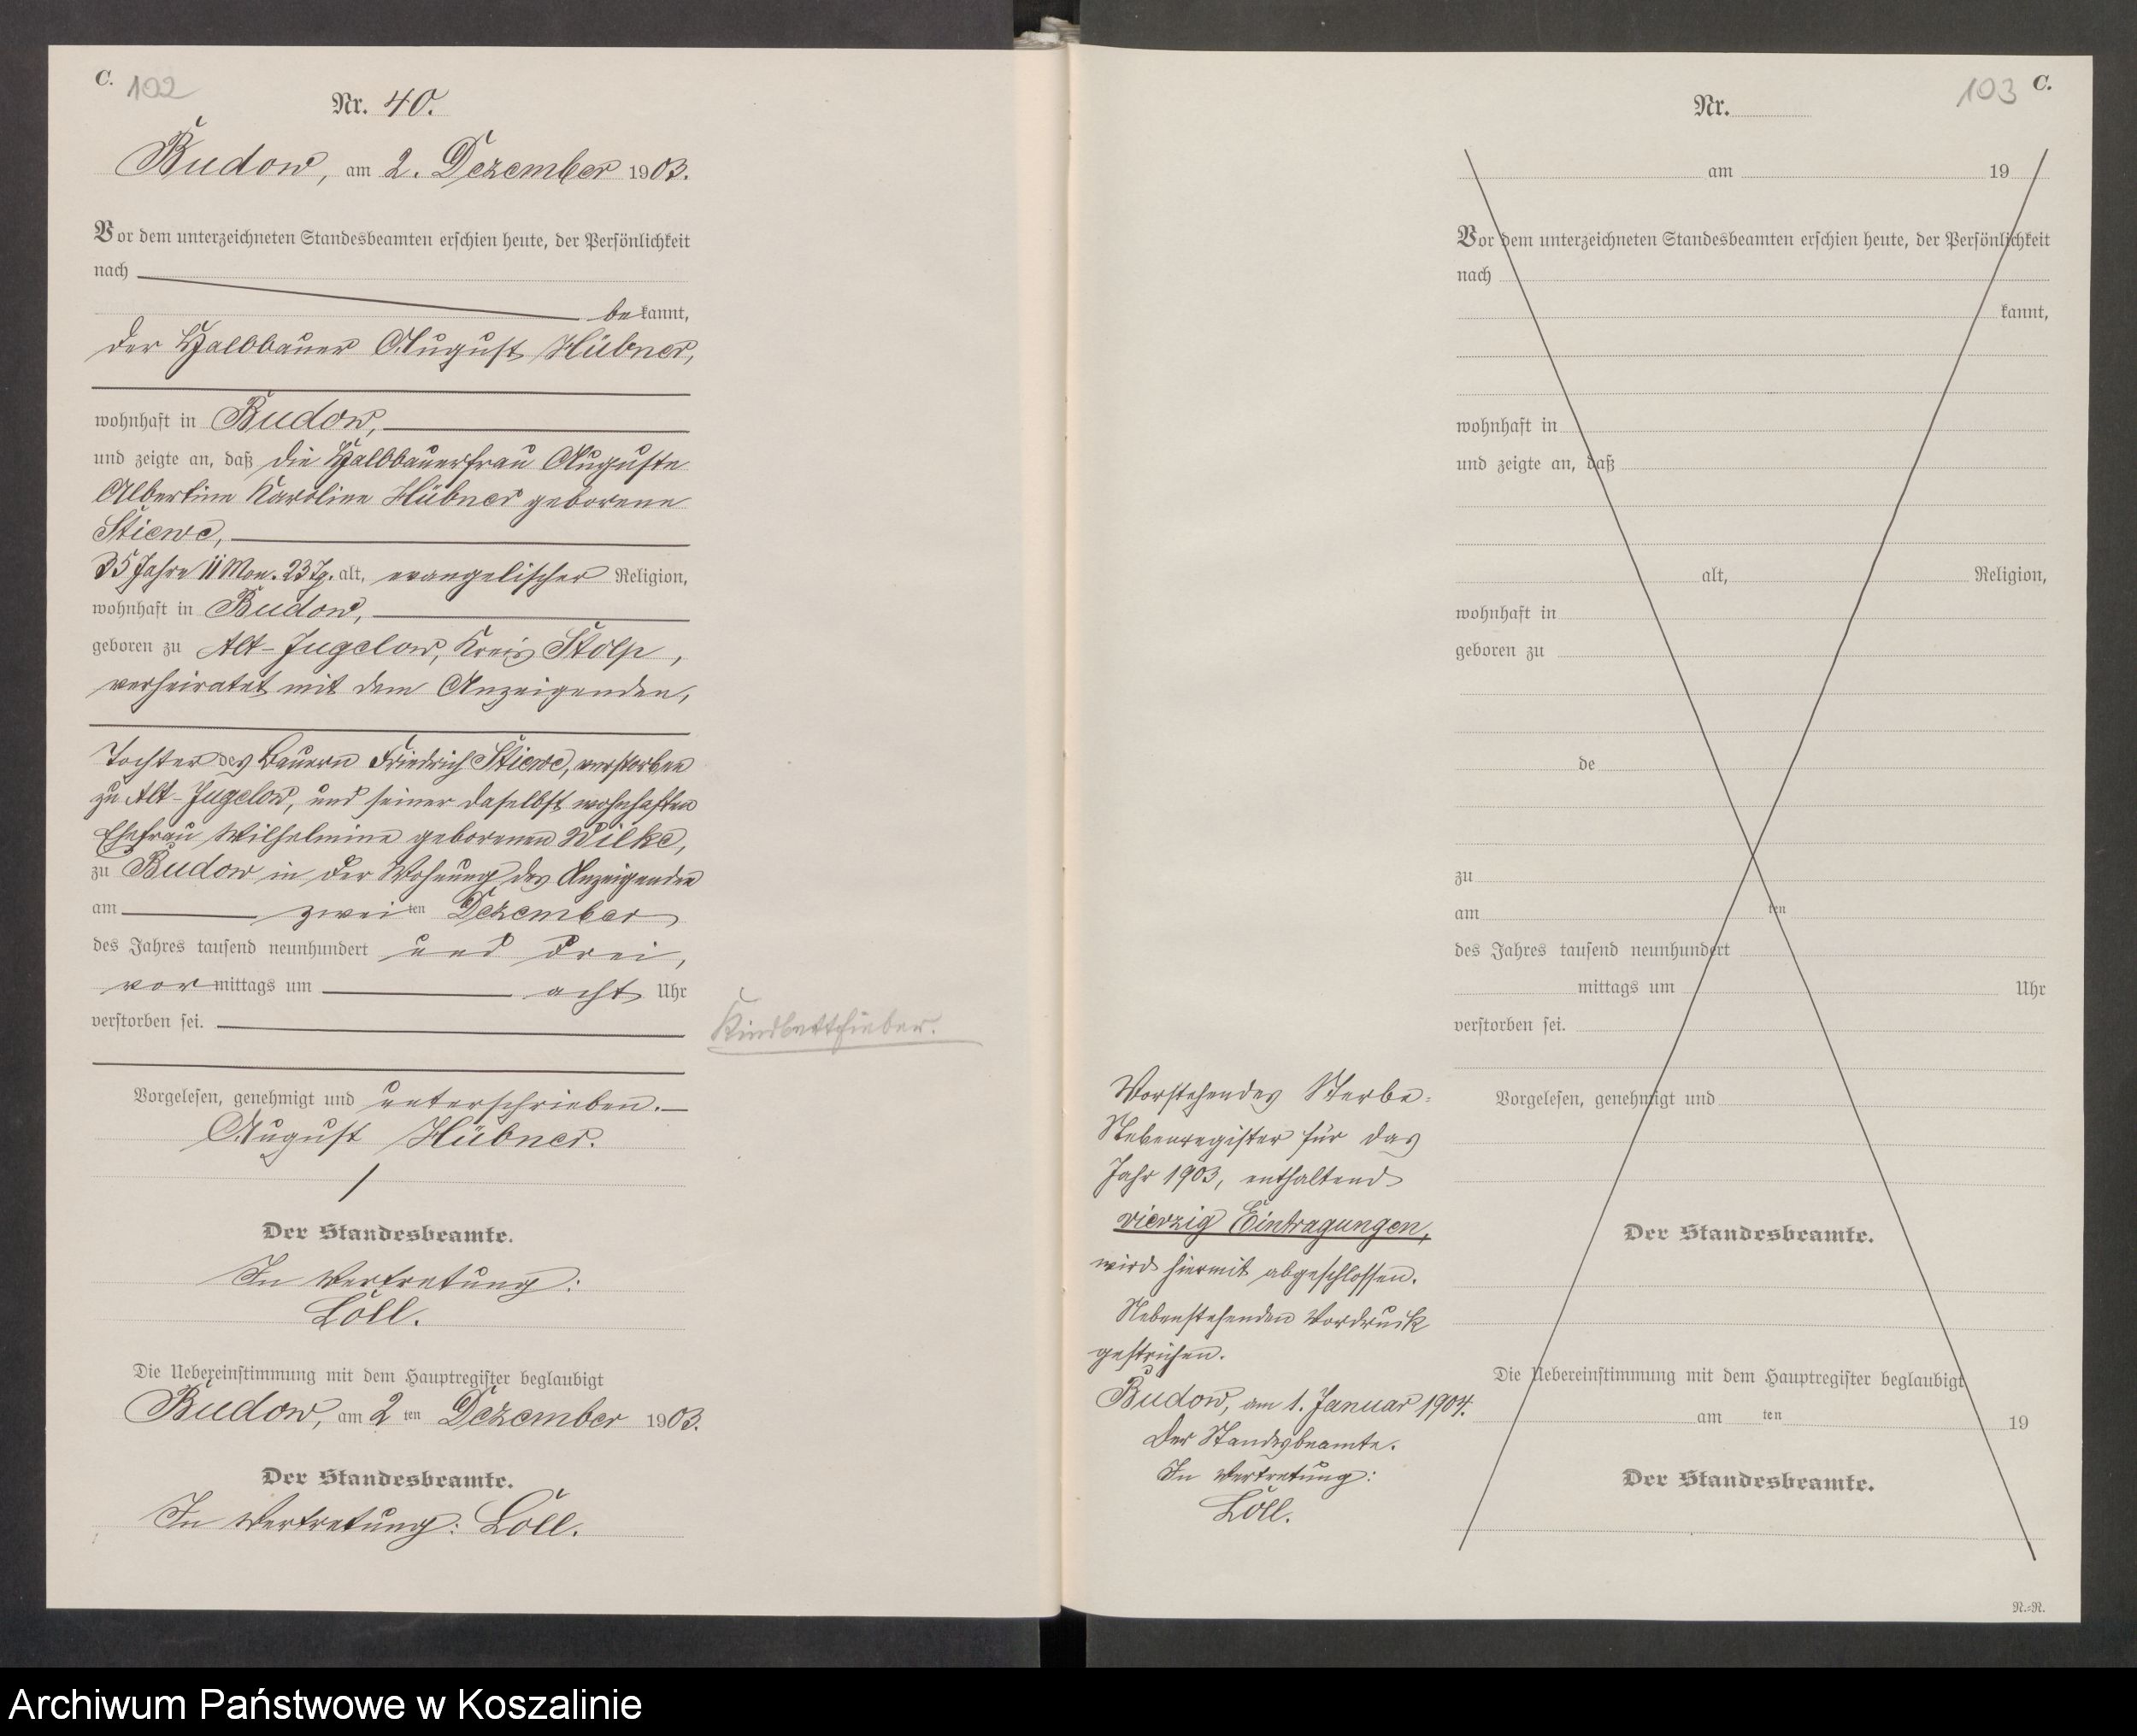 C. 102
Nr. 40.
Budow, am 2. Dezember 1903.
Vor dem unterzeichneten Standesbeamten erschien heute, der Persönlichkeit
nach
bekannt,
der Halbbauer August Hübner,
wohnhaft in Budow,
und zeigte an, daß die Halbbauerfrau Auguste
Albertine Karoline Hübner geborene
Stiewe,
35 Jahre 11 Mon. 23 Tg. alt, evangelischer Religion,
wohnhaft in Budow,
geboren zu Alt-Jugelow, Kreis Stolp,
verheiratet mit dem Anzeigenden,
Tochter des Bauern Friedrich Stiewe, verstorben
zu Alt-Jugelow, und seiner daselbst wohnhaften
Ehefrau Wilhelmine geborenen Wilke,
zu Budow in der Wohnung des Anzeigenden
am zweiten Dezember
des Jahres tausend neunhundert und drei,
vormittags um acht Uhr
verstorben sei.
Kindbettfieber.
Vorgelesen, genehmigt und unterschrieben.
August Hübner.
Der Standesbeamte.
In Vertretung:
Löll.
Die Uebereinstimmung mit dem Hauptregister beglaubigt
Budow, am 2ten Dezember 1903.
Der Standesbeamte.
In Vertretung: Löll.
103 C.
Nr.
am 19
Vor dem unterzeichneten Standesbeamten erschien heute, der Persönlichkeit
nach
kannt,
wohnhaft in
und zeigte an, daß
alt, Religion,
wohnhaft in
geboren zu
de
zu
am ten
des Jahres tausend neunhundert
mittags um Uhr
verstorben sei.
Vorgelesen, genehmigt und
Der Standesbeamte.
Die Uebereinstimmung mit dem Hauptregister beglaubigt
am ten 19
Der Standesbeamte.
Vorstehendes Sterbe-
Nebenregister für das
Jahr 1903, enthaltend
vierzig Eintragungen,
wird hiermit abgeschlossen.
Nebenstehenden Vordruck
gestrichen.
Budow, am 1. Januar 1904.
Der Standesbeamte.
In Vertretung:
Löll.
N.=R.
Archiwum Państwowe w Koszalinie